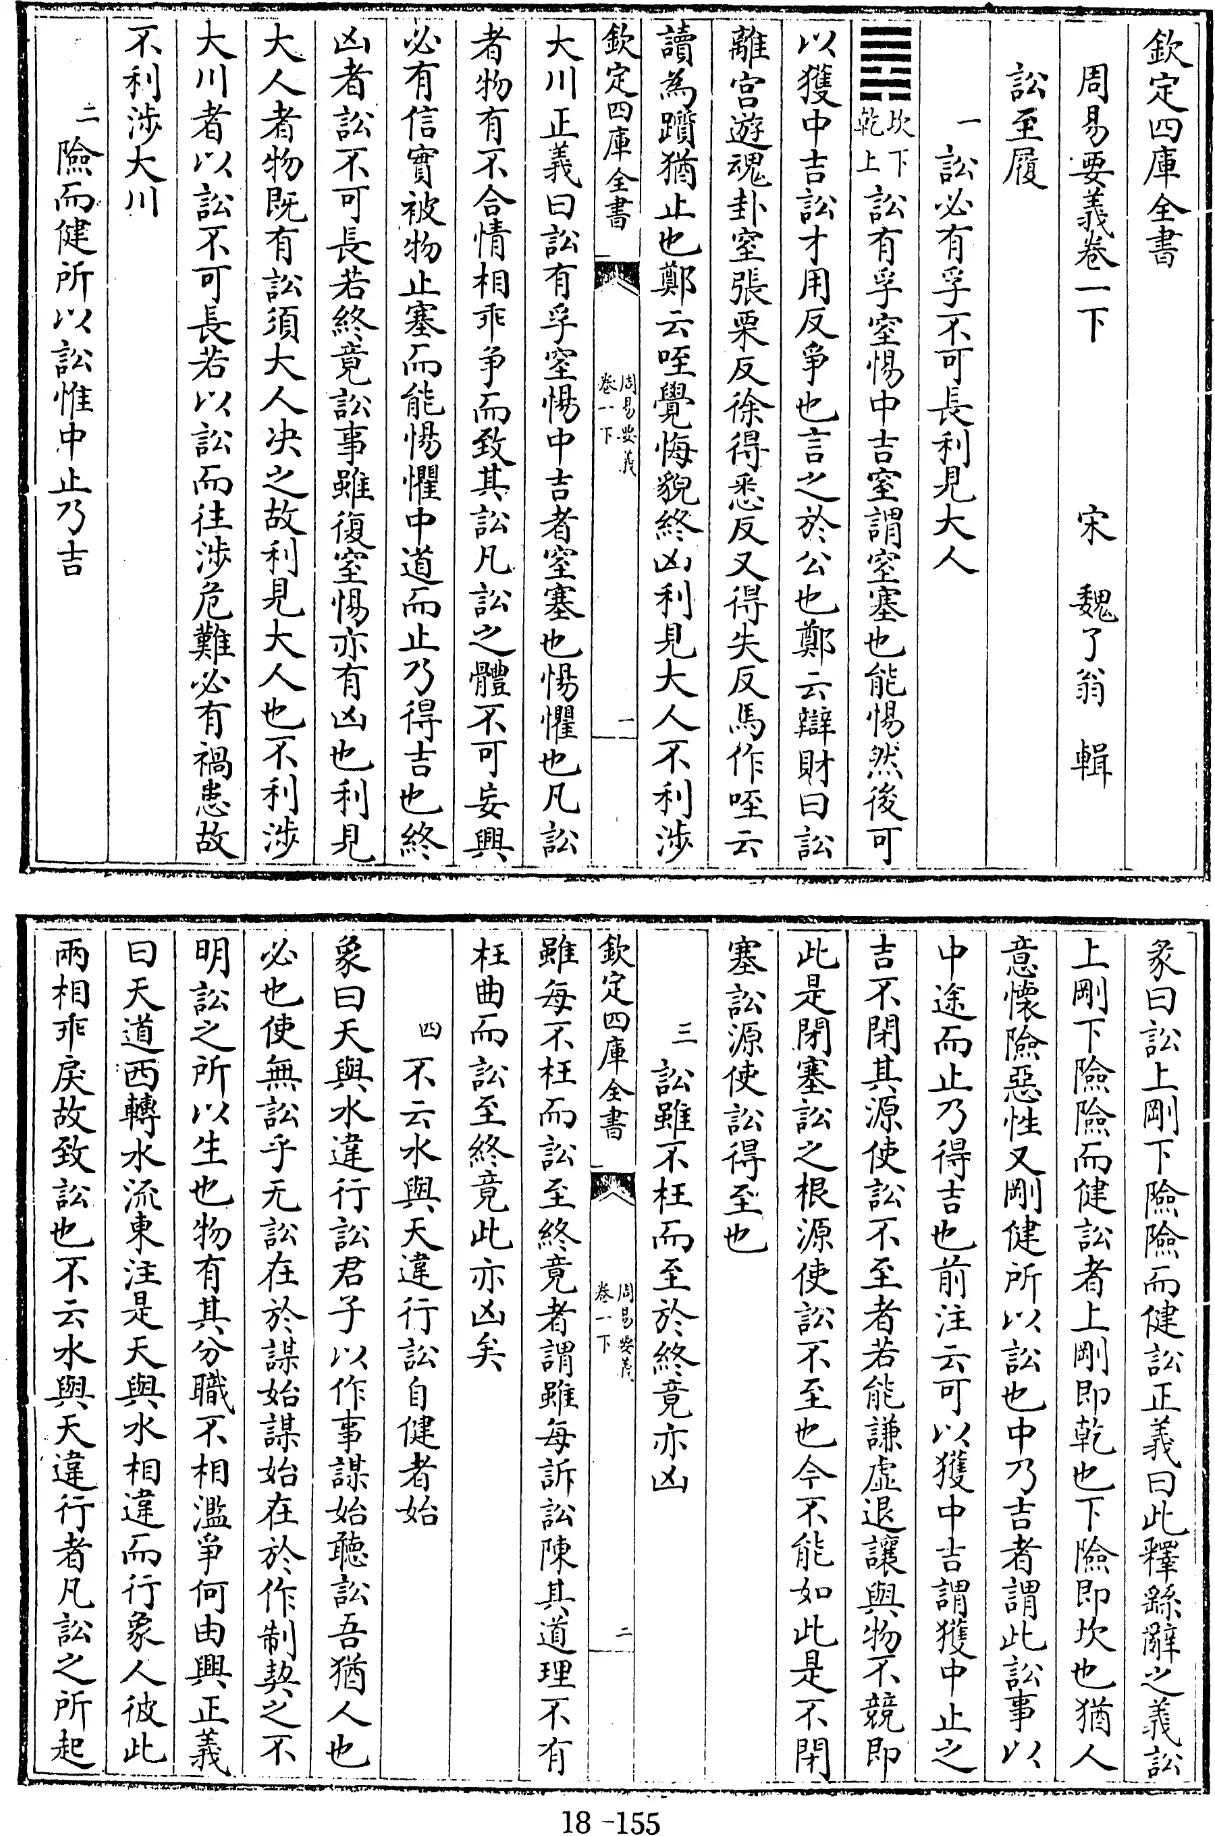 欽定四庫全書
周易要義卷一下　宋　魏了翁　輯
訟至履
一　訟必有孚不可長利見大人
䷅坎下乾上訟有孚窒惕中吉窒謂窒塞也能惕然後可
以獲中吉訟才用反爭也言之於公也鄭云辯財曰訟
離宮遊魂卦窒張栗反徐得悉反又得失反馬作咥云
讀為躓猶止也鄭云咥覺悔貌終凶利見大人不利涉
欽定四庫全書　周易要義卷一下　一
大川正義曰訟有孚窒惕中吉者窒塞也惕懼也凡訟
者物有不合情相乖爭而致其訟凡訟之體不可妄興
必有信實被物止塞而能惕懼中道而止乃得吉也終
凶者訟不可長若終竟訟事雖復窒惕亦有凶也利見
大人者物既有訟須大人决之故利見大人也不利涉
大川者以訟不可長若以訟而往涉危難必有禍患故
不利涉大川
二　險而健所以訟惟中止乃吉
彖曰訟上剛下險險而健訟正義曰此釋繇辭之義訟
上剛下險險而健訟者上剛即乾也下險即坎也猶人
意懷險惡性又剛健所以訟也中乃吉者謂此訟事以
中途而止乃得吉也前注云可以獲中吉謂獲中止之
吉不閉其源使訟不至者若能謙虛退讓與物不競即
此是閉塞訟之根源使訟不至也今不能如此是不閉
塞訟源使訟得至也
三　訟雖不枉而至於終竟亦凶
欽定四庫全書　周易要義卷一下　二
雖每不枉而訟至終竟者謂雖每訴訟陳其道理不有
枉曲而訟至終竟此亦凶矣
四　不云水與天違行訟自健者始
象曰天與水違行訟君子以作事謀始聽訟吾猶人也
必也使無訟乎无訟在於謀始謀始在於作制契之不
明訟之所以生也物有其分職不相濫爭何由興正義
曰天道西轉水流東注是天與水相違而行象人彼此
兩相乖戾故致訟也不云水與天違行者凡訟之所起
18-155